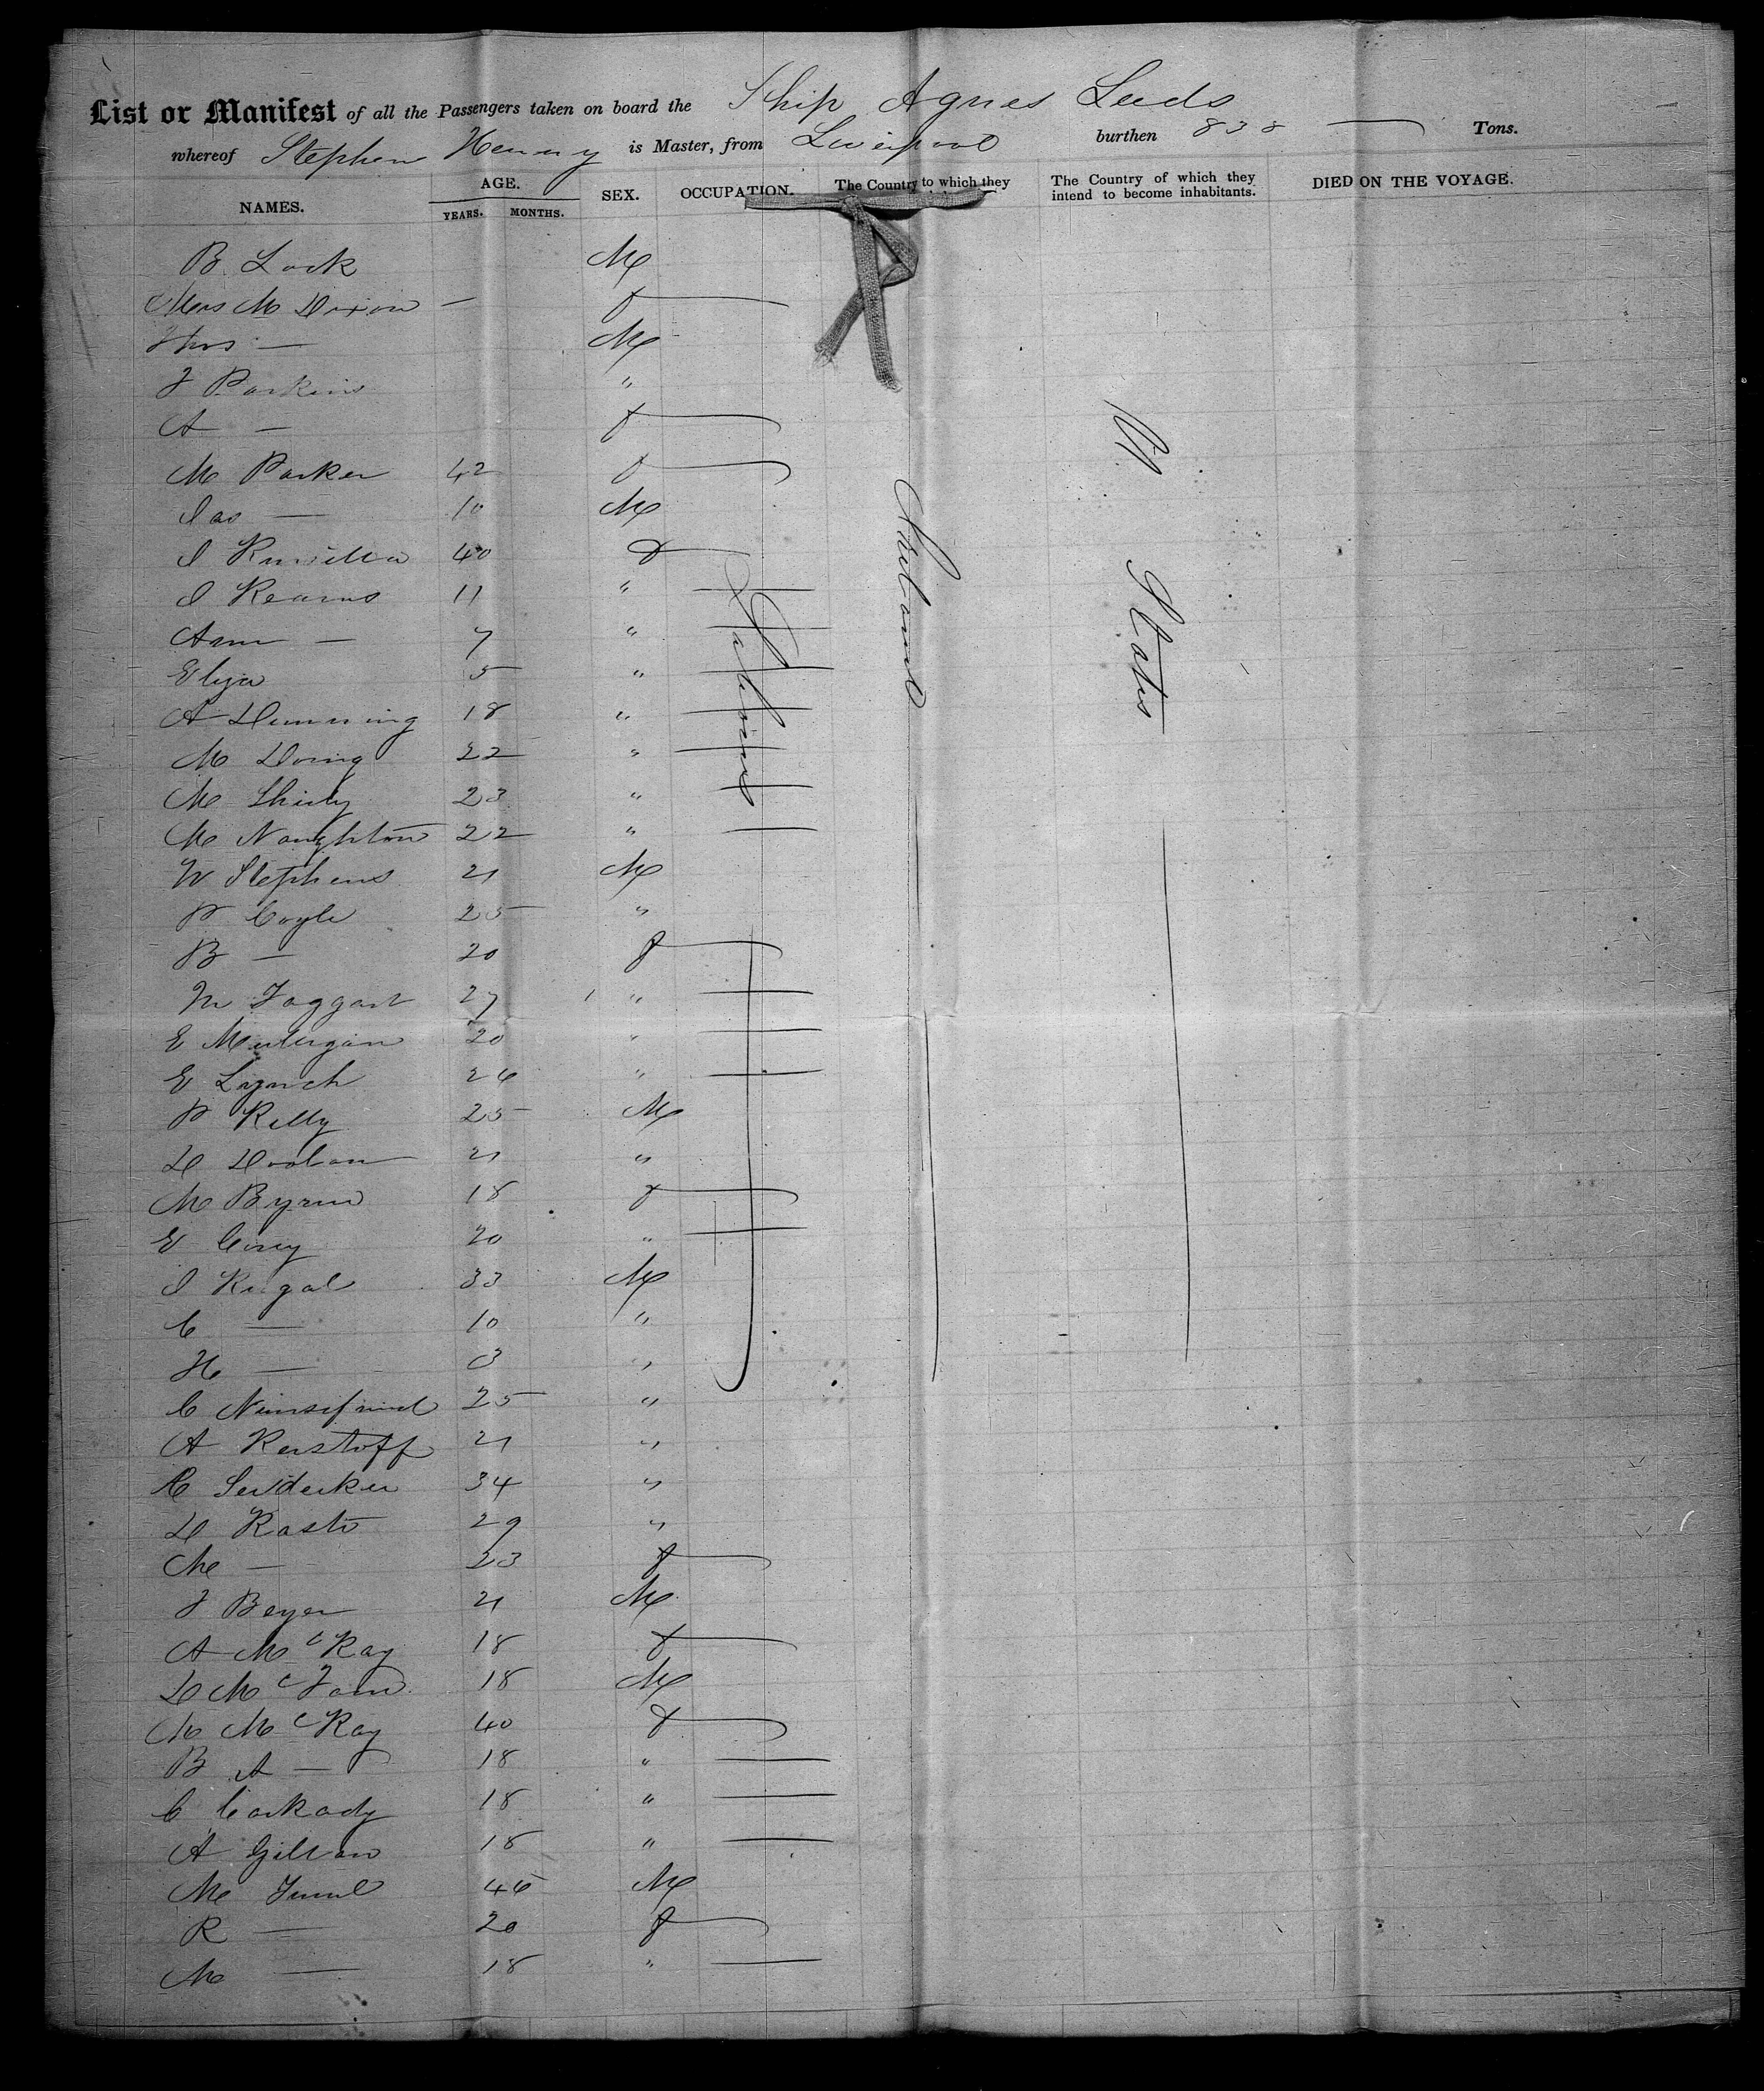 List or Manifest of all the Passengers taken on board the Ship Agnes Leeds
whereof Stephen Henny is Master, from Liverpool burthen 838 — Tons.
NAMES. AGE. YEARS. MONTHS. SEX. OCCUPATION. The Country to which they The Country of which they intend to become inhabitants. DIED ON THE VOYAGE.
B. Lock M
Mrs M Dixon — f
Thos — M
J Parkins "
A — f
M Parker 42 f
Jas — 10 M
J 40 f
J Kearns 11 "
Ann — 7 "
Eliza 5 "
A Dunning 18 "
M Doing 22 "
M Shirly 23 "
M Naughton 22 "
W Stephens 21 M
P Coyle 25 "
B — 20 f
M Taggart 27 "
E Mulligan 20 "
E Lynch 26 "
P Kelly 25 M
D Doolan 21 "
M Byrne 18 f
E Corey 20 "
J Kegal 33 M
C — 10 "
H — 3 "
C 25 "
A Kerstoff 21 "
C 34 "
D Kasto 29 "
M — 23 f
J Beyer 21 M
A McKay 18 f
D Mc 18 M
M McKay 40 f
B A — 18 "
C Carkady 18 "
A Gillan 18 "
M 46 M
R — 20 f
M — 18 "
Ireland
U. States